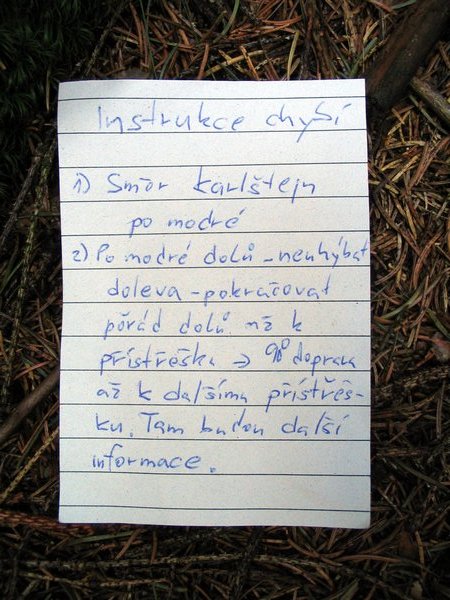 Instrukce chybí
1) Směr Karlštejn
po modré
2) Po modré dolů - neuhýbat
doleva - pokračovat
pořád dolů až k
přístřešku → 90° doprava
až k dalšímu přístřeš-
ku. Tam budou další
informace.